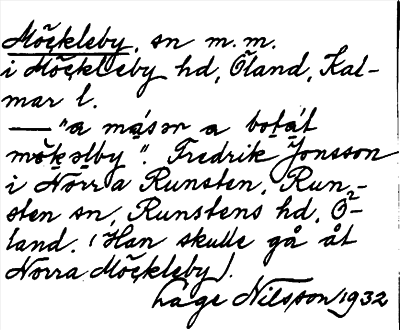 Möckleby, sn m.m.
i Möckleby hd, Öland, Kal-
mar l.
— "a måsər a boṭát
mö̀kəlby". Fredrik Jonsson
i Norra Runsten, Run-
sten sn, Runstens hd, Ö-
land. (Han skulle gå åt
Norra Möckleby).
Lage Nilsson 1932